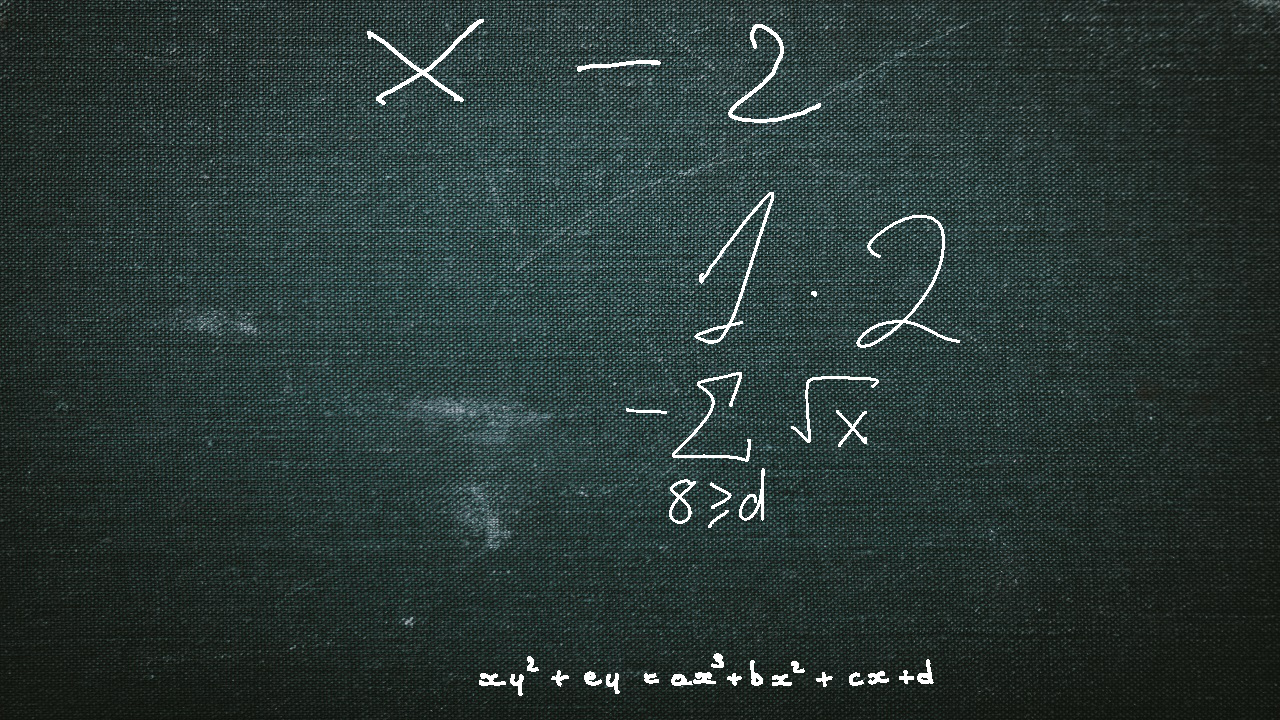 x - 2
1 · 2
-∑_{8≥d} √x
xy² + ey = ax³ + bx² + cx + d